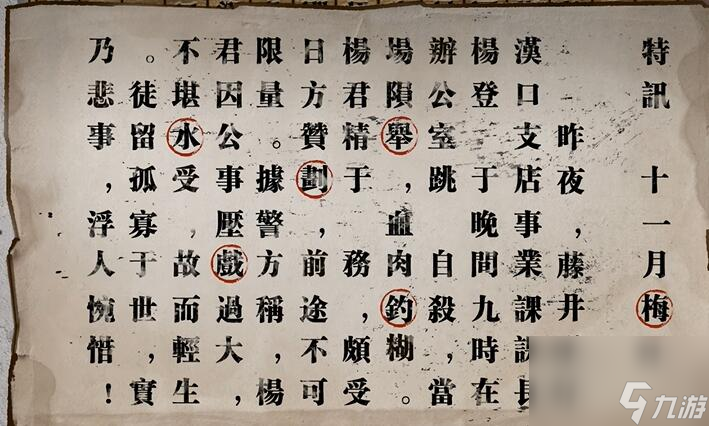 特訊 十一月梅
昨夜，藤井
漢口支店事業課課長
楊登 于晚間九時在
辦公室跳 自殺，當
場隕舉，血肉釣糊。
楊君精于 務，頗受
日方贊劃，前途不可
限量。據警方稱，楊
君因公事壓戲過大，
不堪水受，故而輕生
。徒留孤寡于世，實
乃悲事，浮人惋惜！
九游